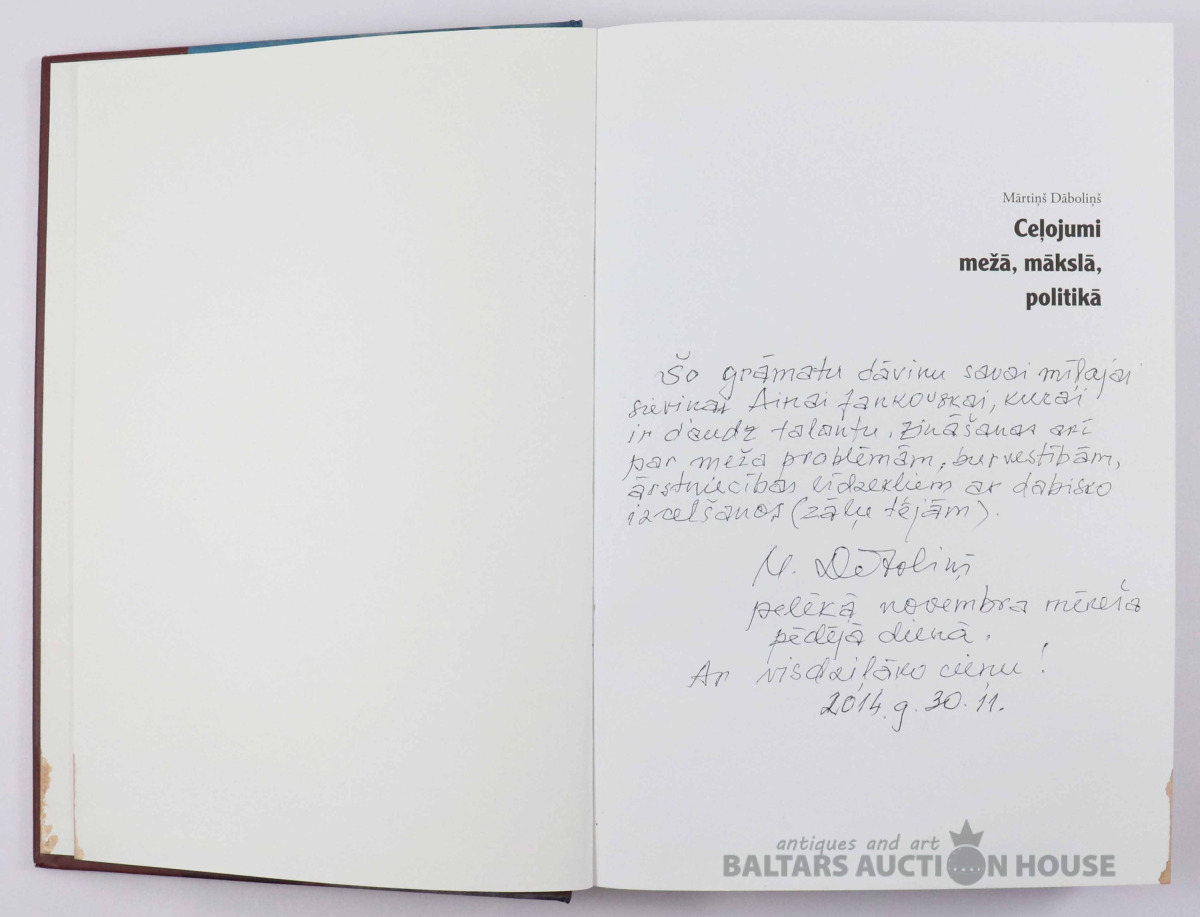 Mārtiņš Dāboliņš
Ceļojumi
mežā, mākslā,
politikā
Šo grāmatu dāvinu savai mīļajai
sievinai Ainai Jankovskai, kurai
ir daudz talantu, zināšanas arī
par meža problēmām, burvestībām,
ārstniecības līdzekļiem ar dabisko
izcelšanos (zāļu tējām).
M. Dāboliņš
pelēkā novembra mēneša
pēdējā dienā.
Ar visdziļāko cieņu!
2014. g. 30. 11.
antiques and art
BALTARS AUCTION HOUSE